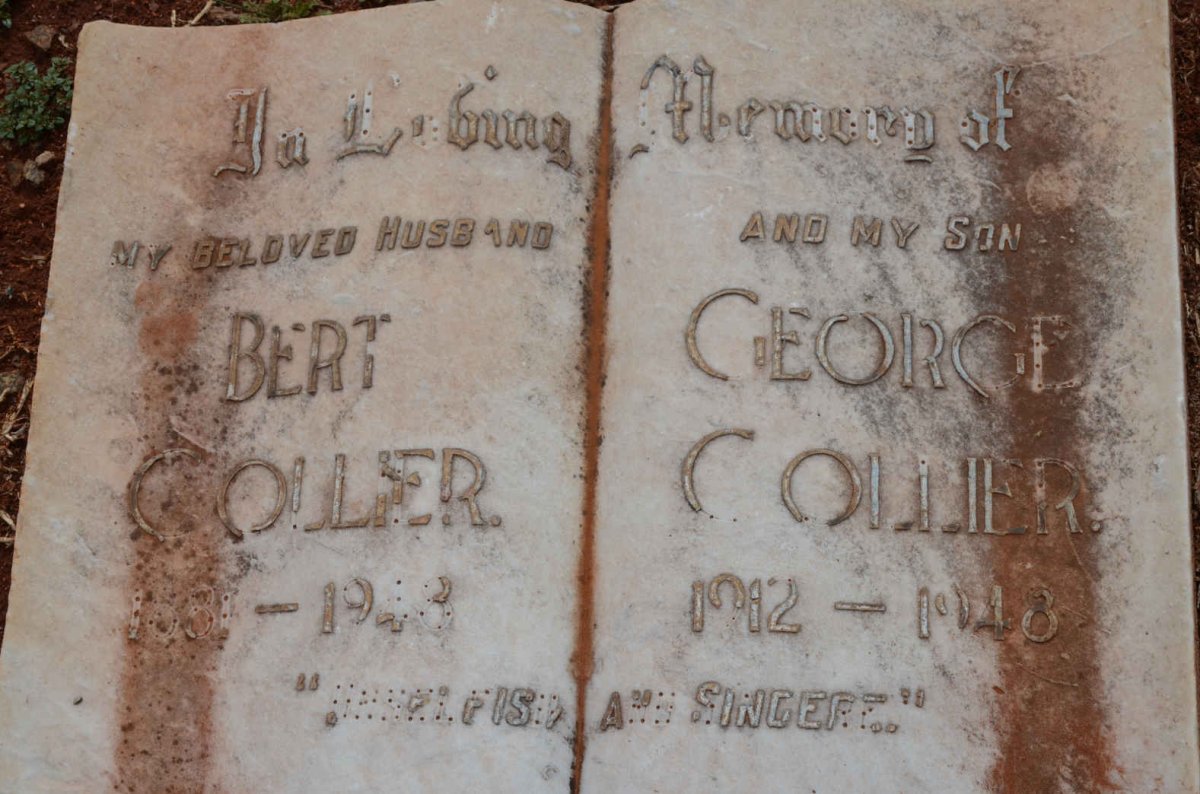 In Loving Memory of
MY BELOVED HUSBAND
BERT
COLLIER.
1881 – 1948
AND MY SON
GEORGE
COLLIER.
1912 – 1948
"UNSELFISH AND SINCERE."